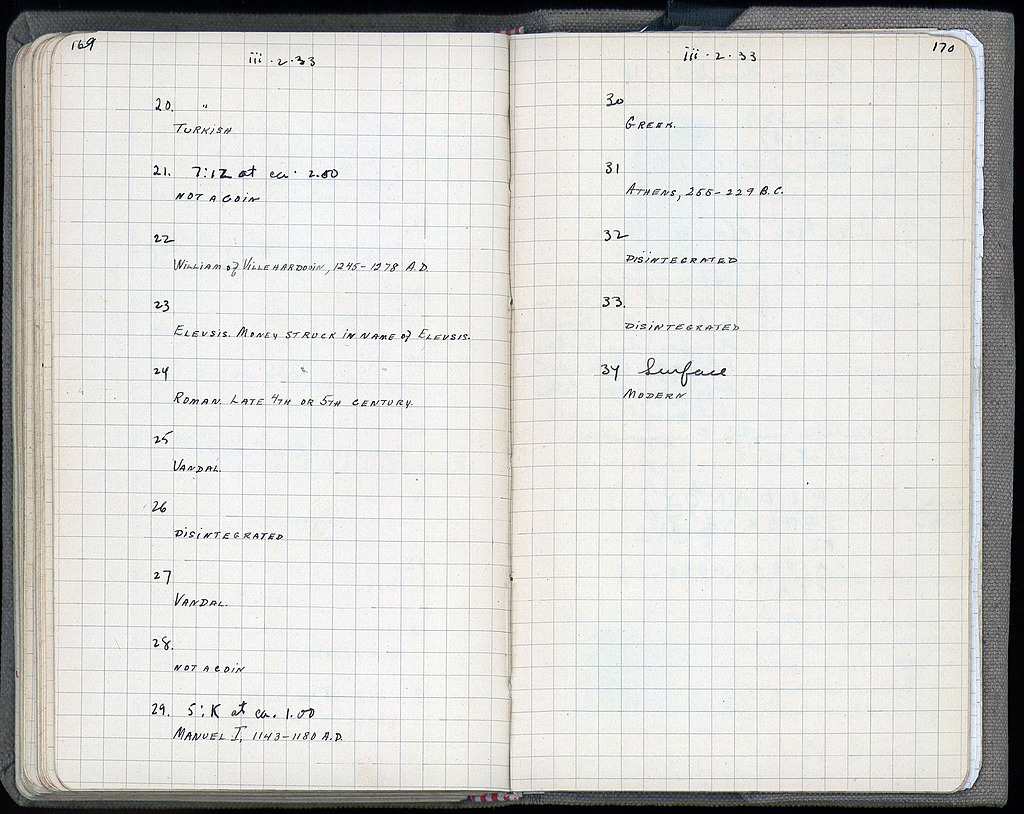 169
iii·2·33
20. "
TURKISH
21. 7:12 at ca. 2.00
NOT A COIN
22
WILLIAM of VILLEHARDOUIN, 1245-1278 A.D.
23
ELEUSIS. MONEY STRUCK IN NAME of ELEUSIS.
24 "
ROMAN. LATE 4TH OR 5TH CENTURY.
25
VANDAL.
26
DISINTEGRATED
27
VANDAL.
28.
NOT A COIN
29. 5:K at ca. 1.00
MANUEL I, 1143-1180 A.D.
170
iii·2·33
30
GREEK.
31
ATHENS, 255-229 B.C.
32
DISINTEGRATED
33.
DISINTEGRATED
34 Surface
MODERN